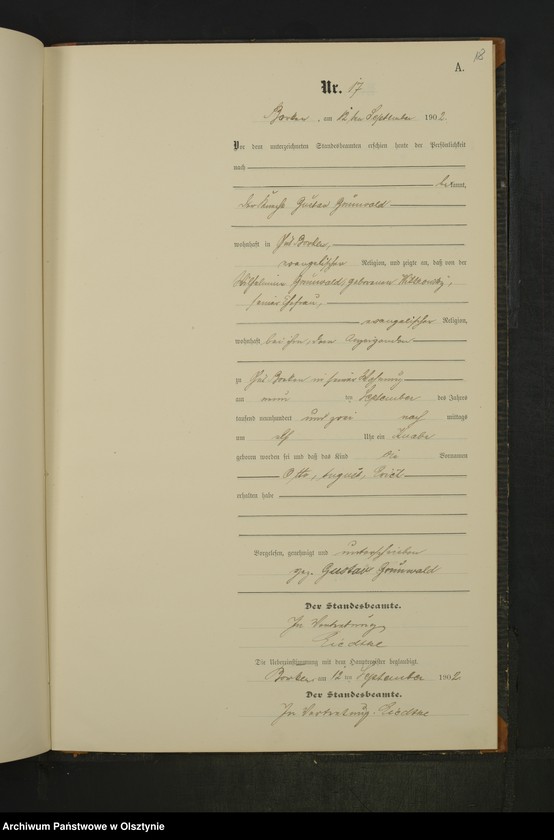 18
A.
Nr. 17
Borken, am 12ten September 1902.
Vor dem unterzeichneten Standesbeamten erschien heute der Persönlichkeit
nach
bekannt,
der Gustav Grünwald
wohnhaft in Borken,
evangelischer Religion, und zeigte an, daß von der
Wilhelmine Grünwald, geborenen
seiner Ehefrau,
evangelischer Religion,
wohnhaft bei ihm, dem Anzeigenden
zu Borken in seiner Wohnung
am neun ten September des Jahres
tausend neunhundert und zwei nach mittags
um elf Uhr ein Knabe
geboren worden sei und daß das Kind die Vornamen
Otto, August, Erich
erhalten habe
Vorgelesen, genehmigt und unterschrieben
gez. Gustav Grünwald
Der Standesbeamte.
In Vertretung
Liedtke
Die Uebereinstimmung mit dem Hauptregister beglaubigt.
Borken, am 12ten September 1902.
Der Standesbeamte.
In Vertretung. Liedtke
Archiwum Państwowe w Olsztynie